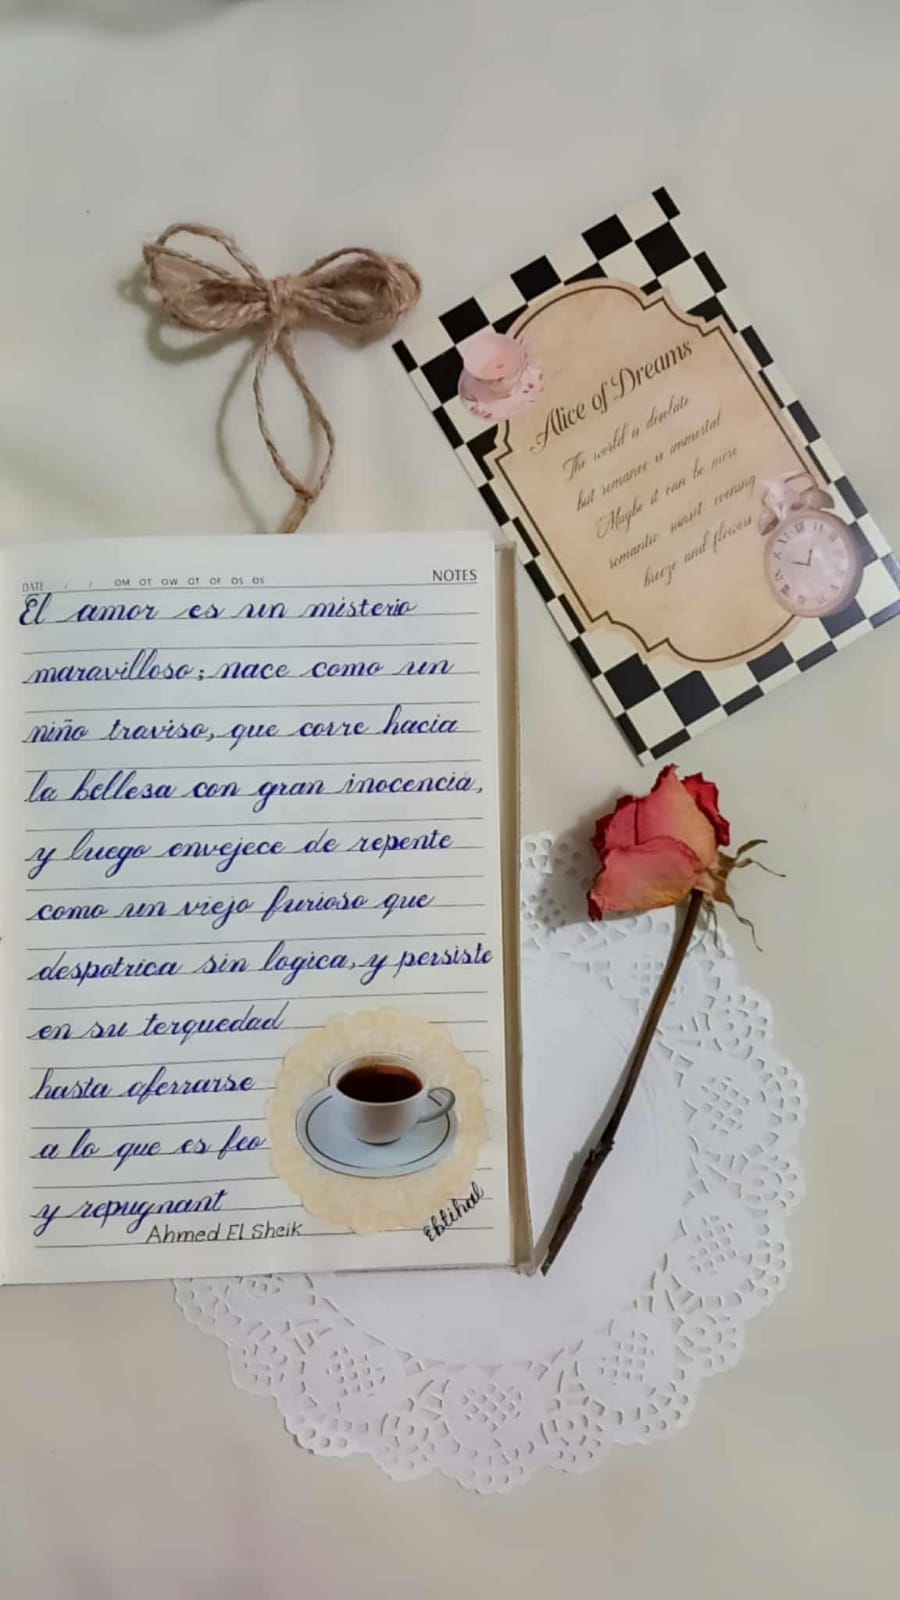 Alice of Dreams
The world is desolate
but romance is immortal
Maybe it can be more
romantic sunset evening
breeze and flowers
DATE / / OM OT OW OT OF OS OS NOTES
El amor es un misterio
maravilloso; nace como un
niño traviso, que corre hacia
la bellesa con gran inocencia,
y luego envejece de repente
como un viejo furioso que
despotrica sin logica, y persiste
en su terquedad
hasta aferrarse
a lo que es feo
y repugnant
Ahmed El Sheik
Ebtihal